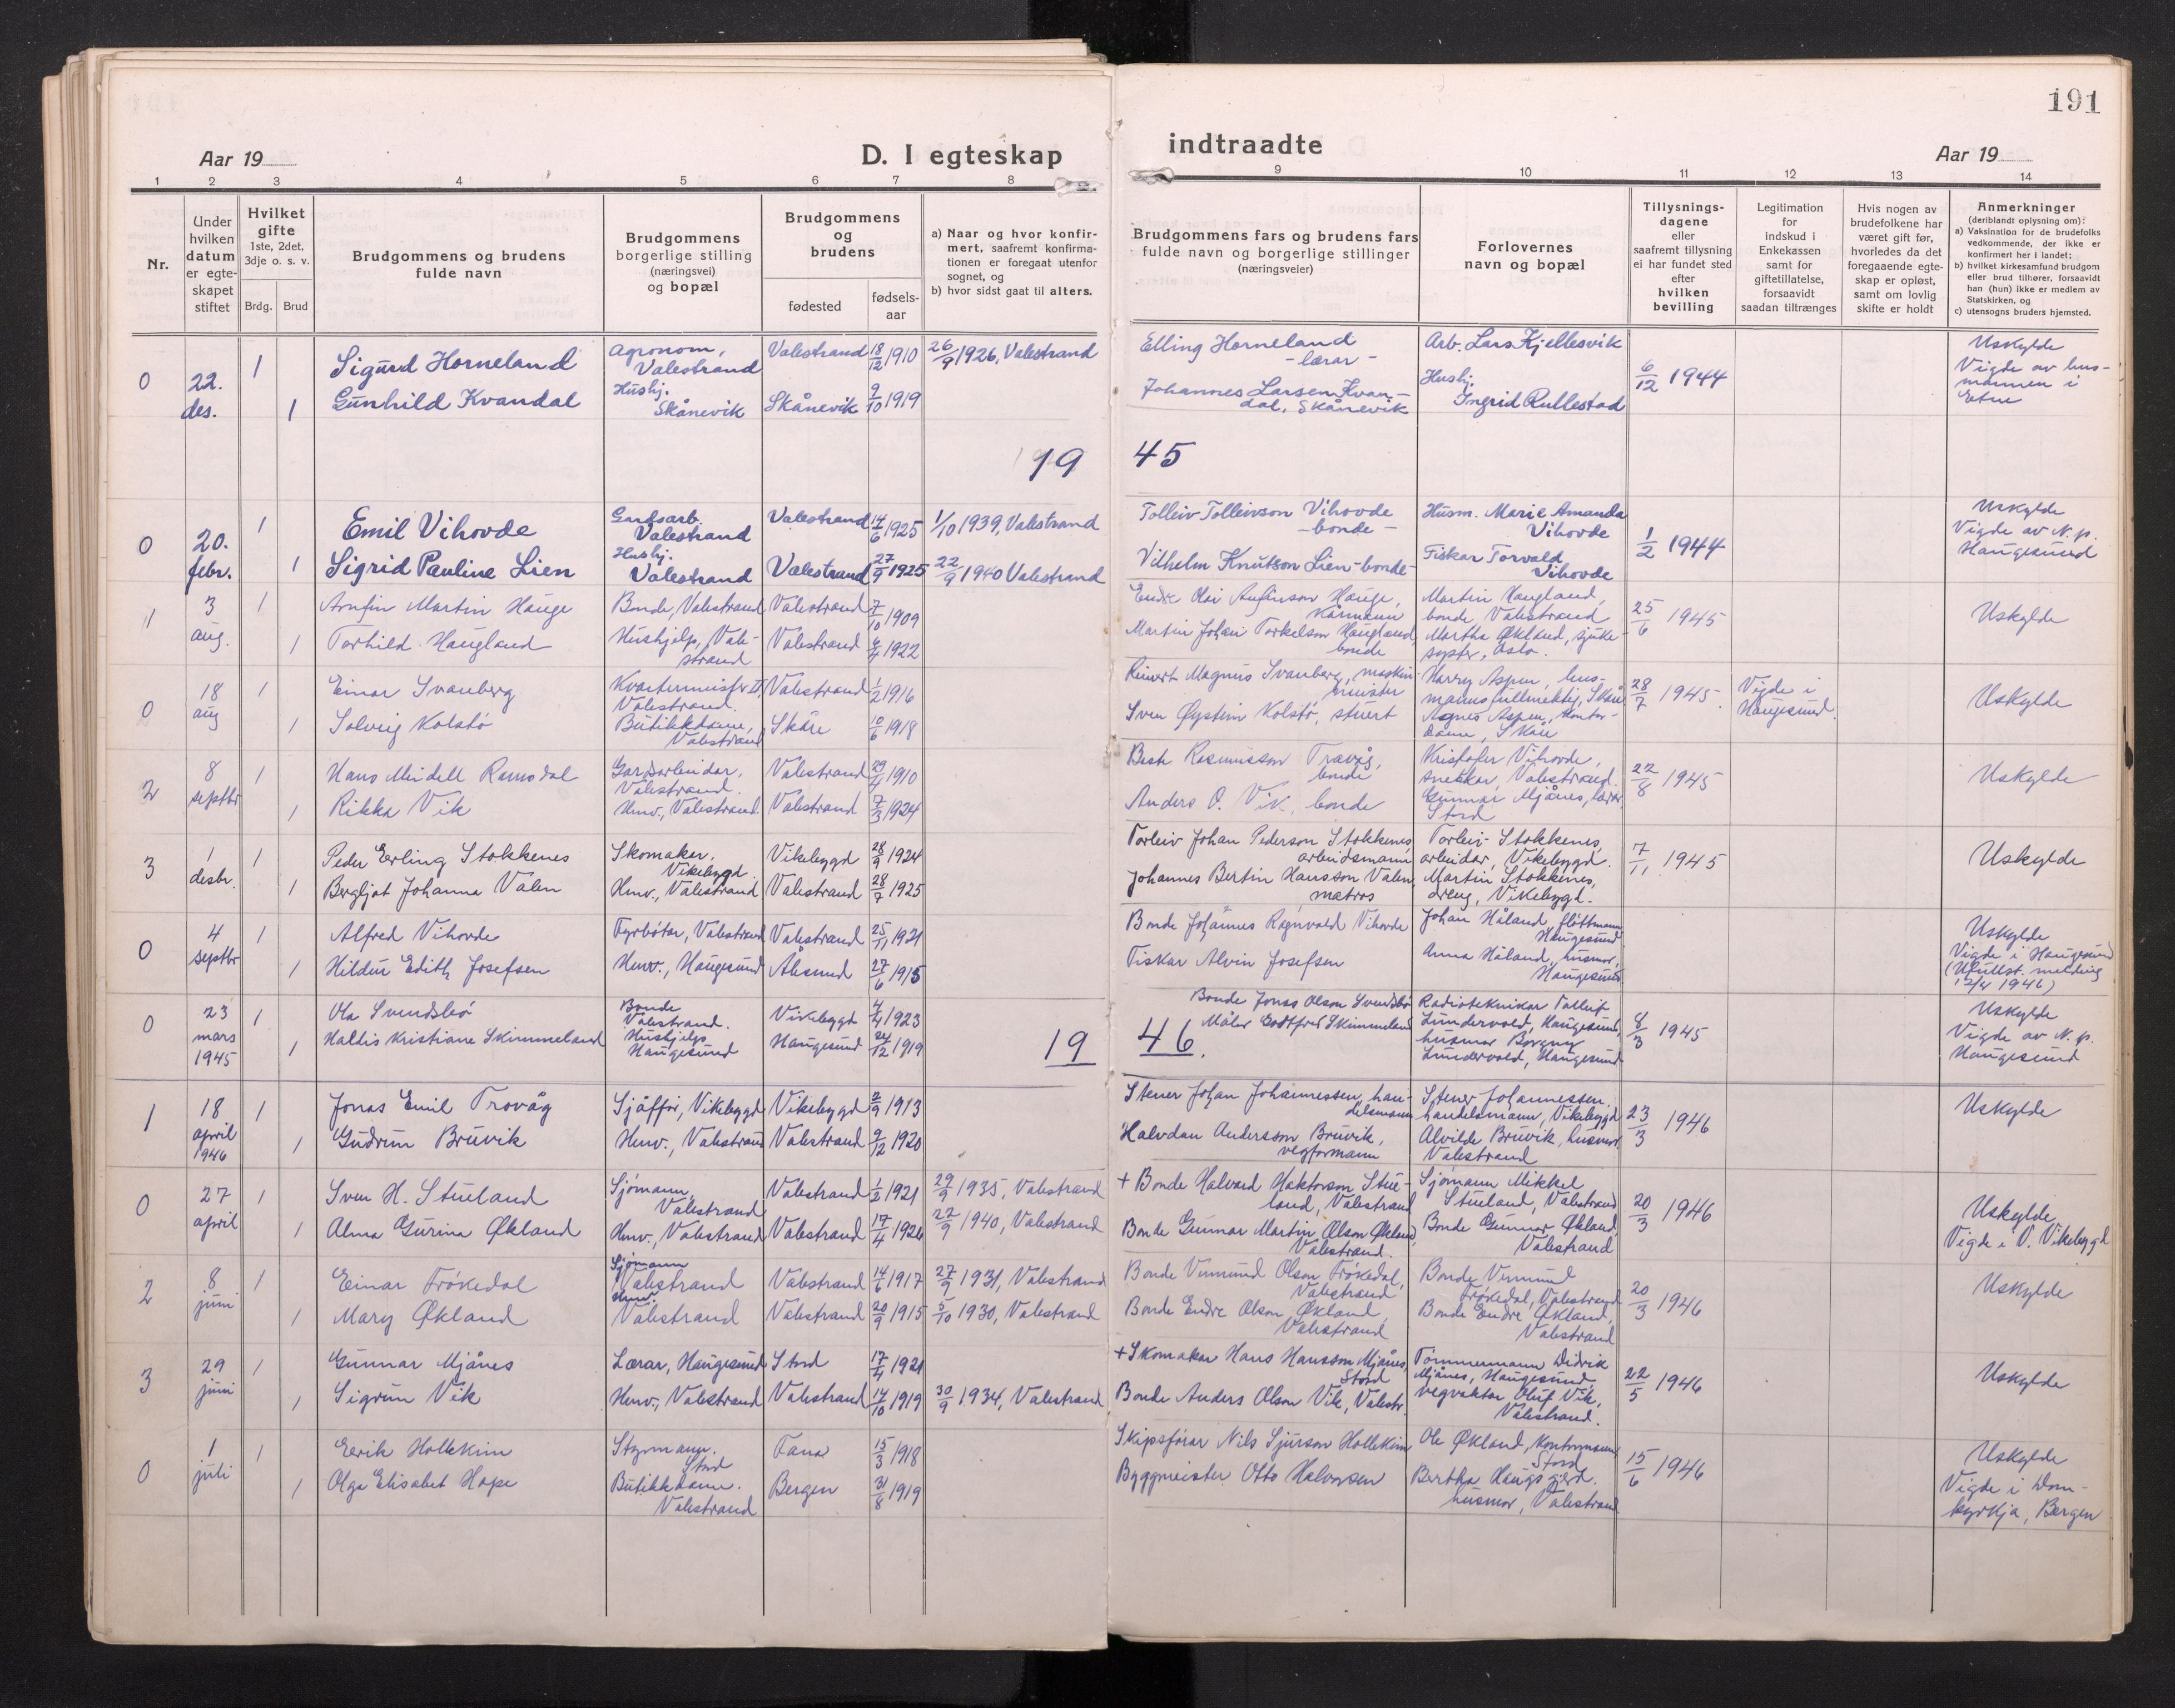 191
Aar 19
D. I egteskap
indtraadte
Aar 19
1 2 3 4 5 6 7 8 9 10 11 12 13 14
Nr.
Under hvilken datum er egteskapet stiftet
Hvilket gifte 1ste, 2det, 3dje o. s. v.
Brdg. Brud
Brudgommens og brudens fulde navn
Brudgommens borgerlige stilling (næringsvei) og bopæl
Brudgommens og brudens
fødested
fødselsaar
a) Naar og hvor konfirmert, saafremt konfirmationen er foregaat utenfor sognet, og
b) hvor sidst gaat til alters.
Brudgommens fars og brudens fars fulde navn og borgerlige stillinger (næringsveier)
Forlovernes navn og bopæl
Tillysningsdagene eller saafremt tillysning ei har fundet sted efter hvilken bevilling
Legitimation for indskud i Enkekassen samt for giftetillatelse, forsaavidt saadan tiltrænges
Hvis nogen av brudefolkene har været gift før, hvorledes da det foregaaende egteskap er opløst, samt om lovlig skifte er holdt
Anmerkninger (deriblandt oplysning om):
a) Vaksination for de brudefolks vedkommende, der ikke er konfirmert her i landet;
b) hvilket kirkesamfund brudgom eller brud tilhører, forsaavidt han (hun) ikke er medlem av Statskirken, og
c) utensogns bruders hjemsted.
0 22. des. 1 Sigurd Horneland Agronom, Valestrand Valestrand 18/12 1910 26/9 1926, Valestrand Elling Horneland - lærar - Arb. Lars Kjellesvik 6/12 1944 Uskylde
1 Gunhild Kvandal Hushj. Skånevik Skånevik 9/10 1919 Johannes Larsen Kvandal, Skånevik Hushj. Ingrid Rullestad Vigde av husmannen i Etne
19 45
0 20. febr. 1 Emil Vihovde Gardsarb. Valestrand Valestrand 14/6 1925 1/10 1939, Valestrand Tolleiv Tolleivson Vihovde - bonde - Husm. Marie Amanda Vihovde 1/2 1944 Uskylde
1 Sigrid Pauline Lien Hushj. Valestrand Valestrand 27/9 1925 22/9 1940 Valestrand Vilhelm Knutson Lien - bonde - Fiskar Torvald Vihovde Vigde av N. p. Haugesund
1 3 aug. 1 Arnfin Martin Hauge Bonde, Valestrand Valestrand 7/10 1909 Hauge, kårmann Martin Haugland, bonde, Valestrand 25/6 1945 Uskylde
1 Torhild Haugland Hushjelp, Valestrand Valestrand 4 1922 Martin Johan Torkelson Haugland bonde Martha Økland, sjukesyster, Oslo.
0 18 aug 1 Einar Svanberg Valestrand. Valestrand 1/2 1916 Reinert Magnus Svanberg, maskinmeister Harry Aspen, 28/7 1945. Vigde i Haugesund. Uskylde
1 Solveig Kolstø Butikkdame, Valestrand Skåre 10/6 1918 Sven Øystein Kolstø, stuert Agnes Aspen, kontordame, Skåre
2 8 septbr 1 Hans Mindell Ramsdal Gardsarbeidar, Valestrand. Valestrand 29/4 1910 Rasmusson Trovåg, bonde Kristofer Vihovde, snekkar, Valestrand. 22/8 1945 Uskylde
1 Rikka Vik Hmv., Valestrand Valestrand 7/3 1924 Anders O. Vik, bonde Gunnar Mjånes, lærar, Stord
3 1 desbr. 1 Peder Erling Stokkenes Skomaker, Vikebygd Vikebygd 28/9 1924 Torleiv Johan Pederson Stokkenes arbeidsmann Torleiv Stokkenes, arbeidar, Vikebygd. 7/11 1945 Uskylde
1 Bergljot Johanna Valen Hmv., Valestrand Valestrand 28/7 1925 Johannes Bertin Hansson Valen, matros Martin Stokkenes, dreng, Vikebygd.
0 4 septbr 1 Alfred Vihovde Fyrbøtar, Valestrand Valestrand 25/11 1921 Bonde Johannes Ragnvald Vihovde Johan Håland, fløttmann Haugesund Uskylde
1 Hildur Edith Josefsen Hmv., Haugesund Ålesund 27/6 1915 Fiskar Alvin Josefsen Anna Håland, husmor, Haugesund Vigde i Haugesund (Ufullst. melding 12/4 1946)
0 23 mars 1945 1 Ola Svendsbø Bonde Valestrand. Vikebygd 4/4 1923 Bonde Jonas Olson Svendsbø Radioteknikar Tolleif Lundervold, Haugesund, 8/3 1945 Uskylde
1 Haldis Kristiane Skimmeland Hushjelp Haugesund Haugesund 24/12 1919 Målar Godtfred Skimmeland husmor Borgny Lundervold, Haugesund Vigde av N. p. Haugesund
19 46.
1 18 april 1946 1 Jonas Emil Trovåg Sjåffør, Vikebygd Vikebygd 2/9 1913 Stener Johan Johannessen, handelsmann Stener Johannessen, handelsmann, Vikebygd 23/3 1946 Uskylde
1 Gudrun Bruvik Hmv., Valestrand Valestrand 9/12 1920 Halvdan Andersson Bruvik, vegformann Alvilde Bruvik, husmor Valestrand
0 27 april 1 Sven H. Stueland Sjømann, Valestrand Valestrand 1/2 1921 29/9 1935, Valestrand + Bonde Halvard Haktorson Stueland, Valestrand Sjømann Mikkel Stueland, Valestrand 20/3 1946 Uskylde
1 Alma Gurina Økland Hmv., Valestrand Valestrand 17/4 1926 22/9 1940, Valestrand Bonde Gunnar Martin Olson Økland, Valestrand. Bonde Gunnar Økland, Valestrand Vigde i V. Vikebygd
2 8 juni 1 Einar Frøkedal Sjømann Valestrand Valestrand 14/6 1917 27/9 1931, Valestrand Bonde Vermund Olson Frøkedal, Valestrand Bonde Vermund Frøkedal, Valestrand 20/3 1946 Uskylde
1 Mary Økland Hmv. Valestrand Valestrand 20/9 1915 5/10 1930, Valestrand Bonde Endre Olson Økland, Valestrand Bonde Endre Økland, Valestrand
3 29 juni 1 Gunnar Mjånes Lærar, Haugesund Stord 17/4 1921 + Skomakar Hans Hansson Mjånes, Stord Tømmermann Didrik Mjånes, Haugesund 22/5 1946 Uskylde
1 Sigrun Vik Hmv., Valestrand Valestrand 14/10 1919 30/9 1934, Valestrand Bonde Anders Olson Vik, Valestr. vegvaktar Oluf Vik, Valestrand.
0 1 juli 1 Eirik Hollekim Styrmann. Stord Fana 15/3 1918 Skipsførar Nils Sjurson Hollekim Ole Økland, kontormann, Stord 15/6 1946 Uskylde
1 Olga Elisabet Hope Butikkdame. Valestrand Bergen 31/8 1919 Byggmeister Otto Halvorsen Bertha Haugsgjerd. husmor, Valestrand Vigde i Domkyrkja, Bergen